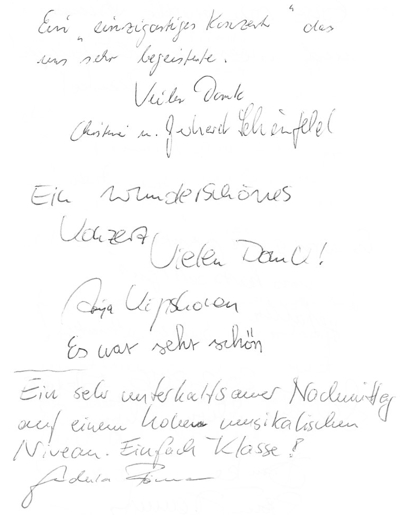 Ein "einzigartiges Konzert" das
uns sehr begeisterte.
Vielen Dank
Christine u. Gerhard Schönfeld
Ein wunderschönes
Konzert
Vielen Dank!
Anja
Es war sehr schön
Ein sehr unterhaltsamer Nachmittag
auf einem hohen musikalischen
Niveau. Einfach Klasse!